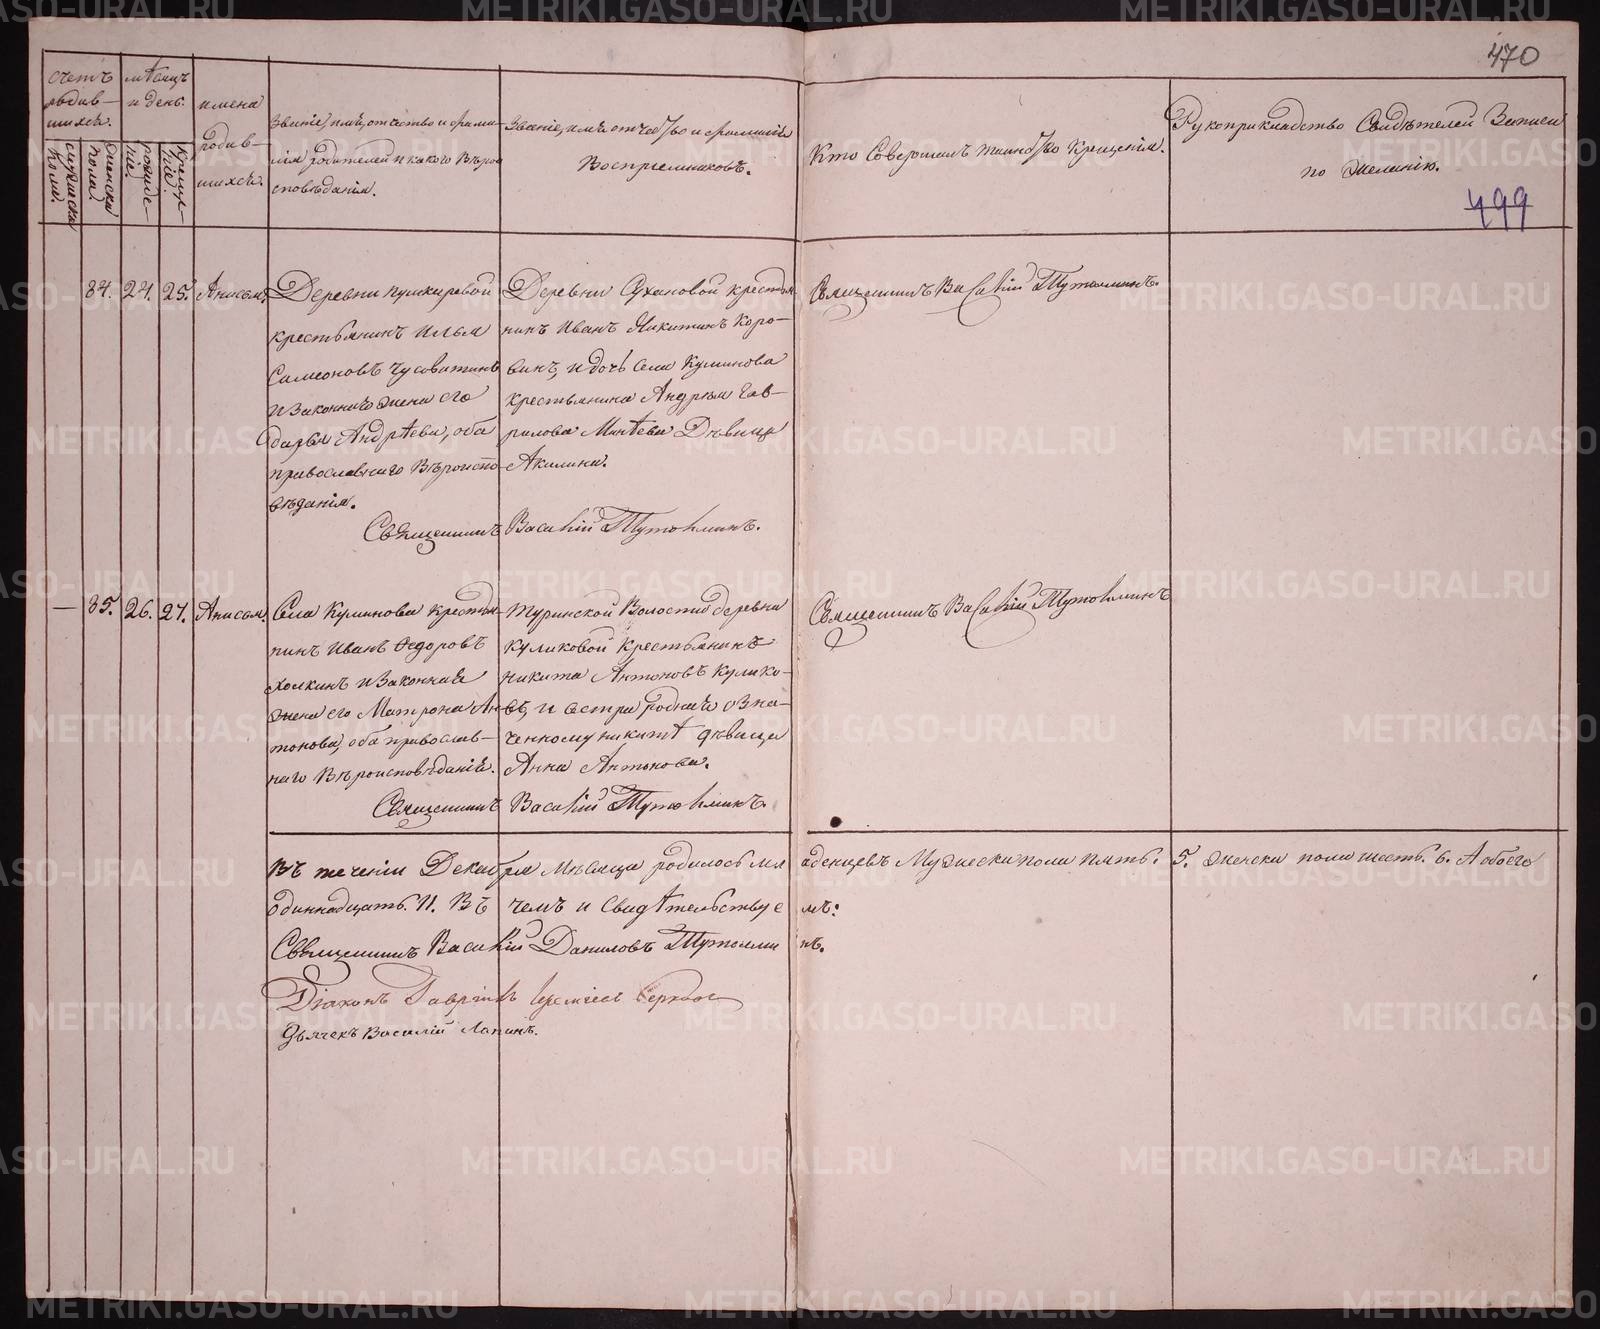 470
счетъ родив-
шихся.
мѣсяцъ
и день.
имена
родив-
шихся.
Званіе, имя, отчество и фами-
лія родителей и какого вѣрои
сповѣданія.
Званіе, имя отчество и фамилія
Воспріемниковъ.
Кто Совершалъ таинство Крещенія.
Рукоприкладство Свидѣтелей Записи
по желанію.
499
мужеска
пола.
женска
пола.
рожде-
ніе.
Креще-
ніе.
84. 24. 25.
Деревни
крестьянинъ Илья
Симеоновъ Чусовитинъ
и Законная жена его
Дарья Андрѣева, оба
православнаго Вѣроиспо-
вѣданія.
Деревни Сухановой крестья-
нинъ Иванъ Никитинъ Коро-
винъ, и дочь Села Куминова
крестьянина Андрея Гав-
рилова Минѣева Дѣвица
Акилина.
Священникъ Василій Тутолминъ.
Священникъ Василій Тутолминъ.
— 85. 26. 27. Анисья.
Села Куминова крестья-
нинъ Иванъ Ѳедоровъ
Холкинъ и Законная
жена его Матрона Ан-
тонова, оба православ-
наго Вѣроисповѣданія.
Туринской Волости деревни
Куликовой Крестьянинъ
Никита Антоновъ Кулико-
въ, и сестра родная озна-
ченному Никитѣ дѣвица
Анна Антонова.
Священникъ Василій Тутолминъ
Священникъ Василій Тутолминъ.
Въ теченіи Декабря Мѣсяца родилось мла
денцевъ Мужеска пола пять. 5. женска пола шесть. 6. А обоего
одиннадцать. 11. Въ чемъ и Свидѣтельствуе
мъ:
Священникъ Василій Даниловъ Тутолми
нъ.
Діаконъ Гавріилъ
Дьячекъ Василій Лапинъ.
METRIKI.GASO-URAL.RU